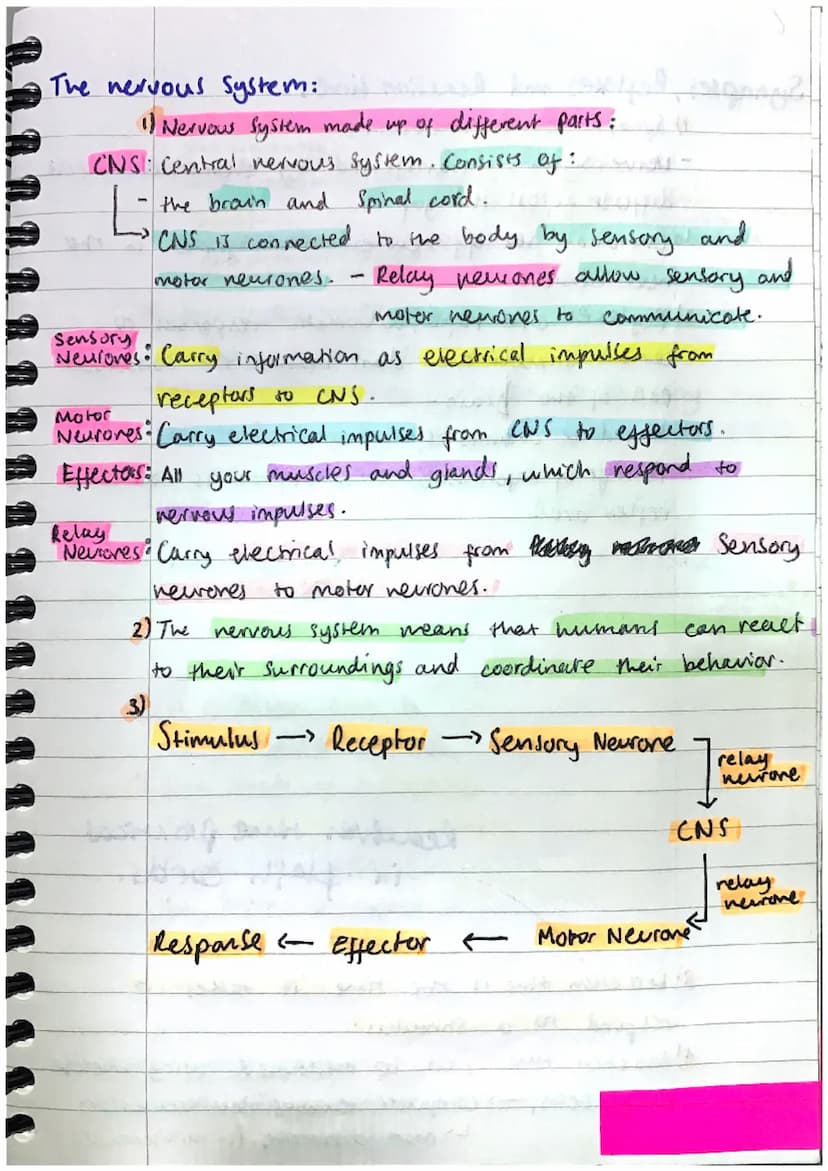 The nervous system:
1) Nervous system made up of different parts:
CNS: Central nervous system. Consists of:
- the brain and spinal cord.
→ CNS is connected to the body by sensory and
motor neurones. - Relay neurones allow sensory and
motor neurones to communicate.
Sensory
Neurones: Carry information as electrical impulses from
receptors to CNS.
Motor
Neurones: Carry electrical impulses from CNS to effectors.
Effectors: All your muscles and glands, which respond to
nervous impulses.
Relay
Neurones: Carry electrical impulses from Sensory
neurones to motor neurones.
2) The nervous system means that humans can react
to their surroundings and coordinate their behavior.
3)
Stimulus → Receptor → Sensory Neurone
relay
neurone
CNS
relay
neurone
Response ← Effector ← Motor Neurone